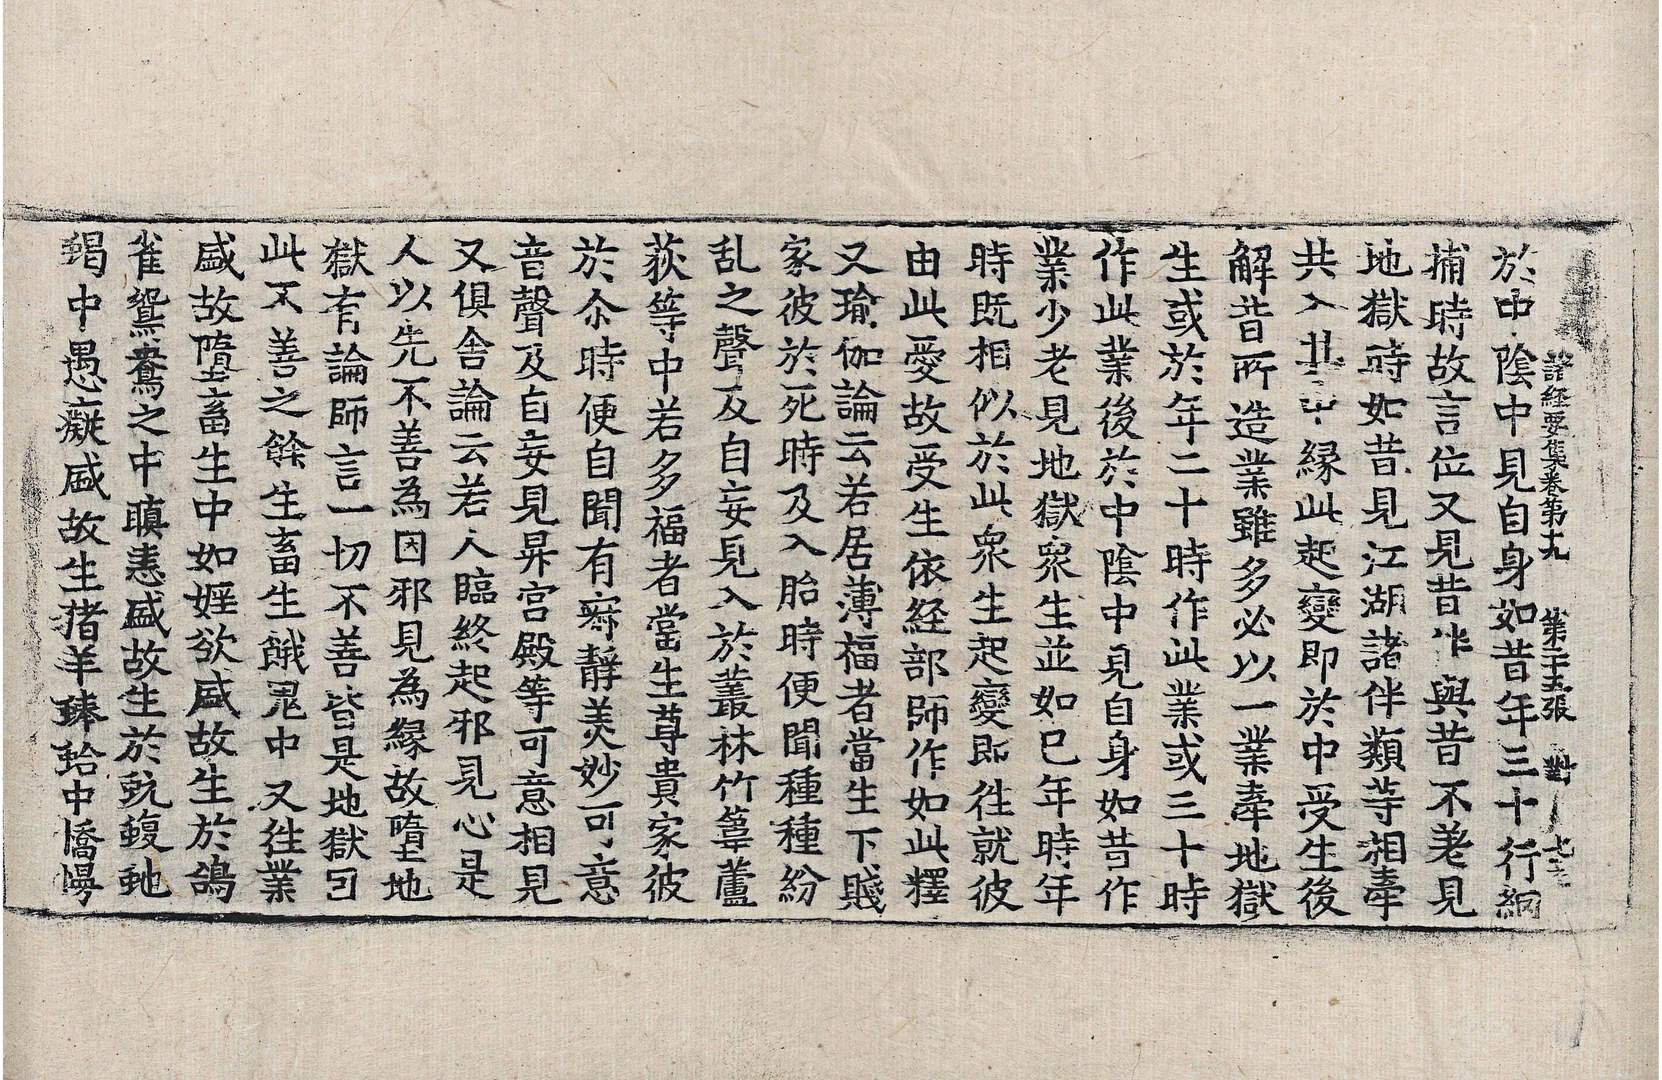 諸經要集卷第十九 第二十五張 對
於中陰中見自身如昔年三十行網
捕時故言位又見昔作與昔不差見
地獄時如昔見江湖諸伴類等相牽
共入其中緣此起變即於中受生後
解昔所造業雖多必以一業牽地獄
生或於年二十時作此業或三十時
作此業後於中陰中見自身如昔作
業少老見地獄眾生並如已年時年
時既相似於此眾生起變即徃就彼
由此愛故受生依経部師作如此釋
又瑜伽論云若居薄福者當生下賤
家彼於死時及入胎時便聞種種紛
乱之聲及自妄見入於叢林竹葦蘆
荻等中若多福者當生尊貴家彼
於尒時便自聞有寂靜美妙可意
音聲及自妄見昇宮殿等可意相見
又俱舍論云若人臨終起邪見心是
人以先不善為因邪見為緣故墮地
獄有論師言一切不善皆是地獄因
此不善之餘生畜生餓鬼中又徃業
盛故墮畜生中如婬欲盛故生於鴿
雀鴛鴦之中瞋恚盛故生於蚖蝮虵
蝎中愚癡盛故生猪羊蜯蛤中憍慢